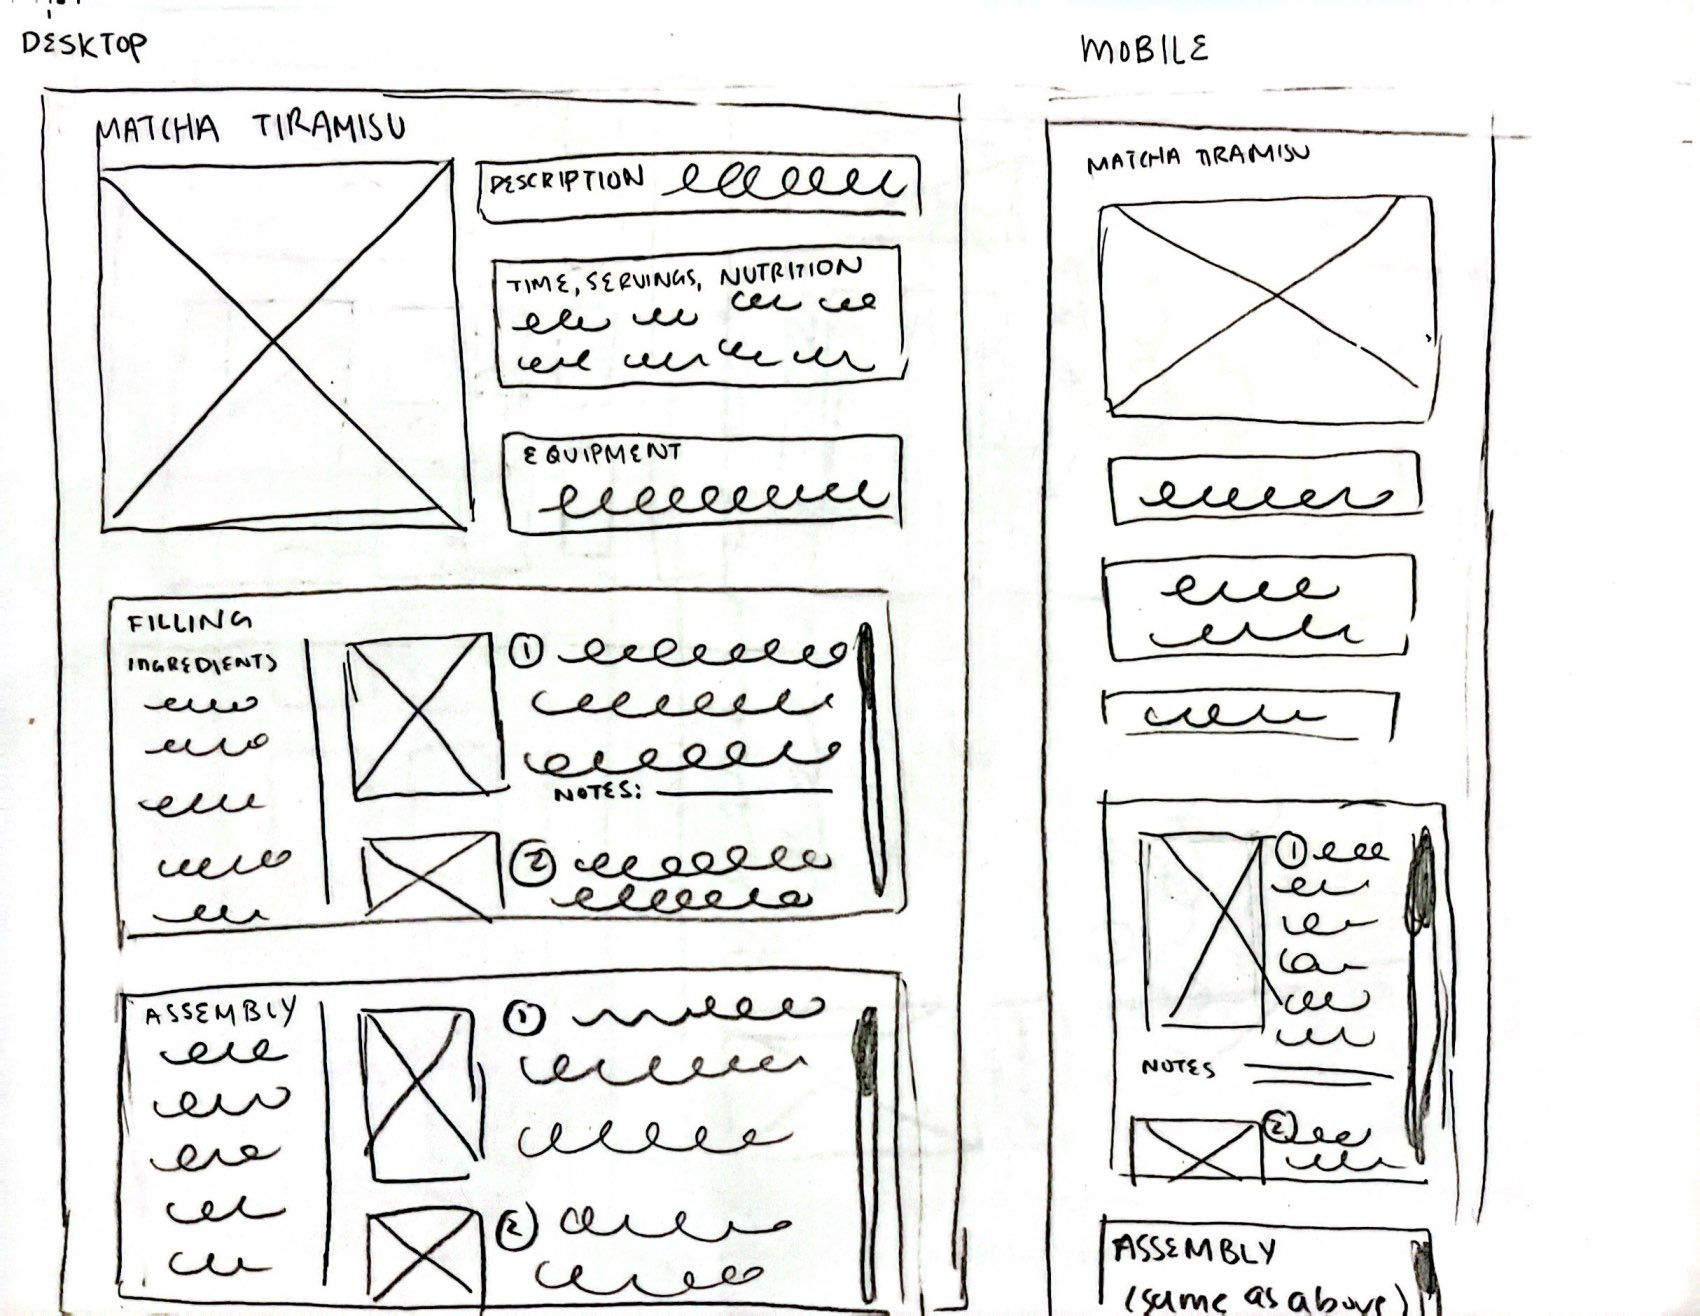 DESKTOP
MATCHA TIRAMISU
DESCRIPTION
TIME, SERVINGS, NUTRITION
EQUIPMENT
FILLING
INGREDIENTS
1
NOTES:
2
ASSEMBLY
1
2
MOBILE
MATCHA TIRAMISU
1
NOTES
2
ASSEMBLY
(same as above)